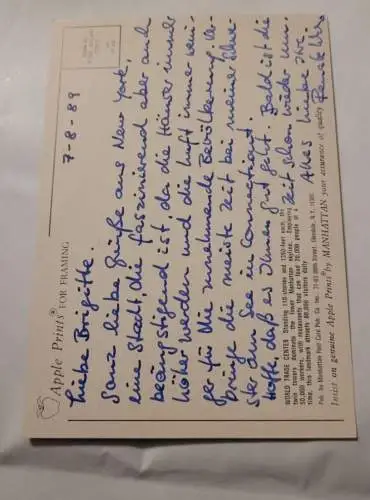 Apple Prints® FOR FRAMING
7-8-89
Liebe Brigitte.
Ganz liebe Grüße aus New York,
eine Stadt, die faszinierend aber auch
beängstigend ist, da die Häuser immer
höher werden und die Luft immer weni-
ger für die zunehmende Bevölkerung. Ve-
bringe die meiste Zeit bei meiner Schwe-
ster am See in Connecticut.
Hoffe, daß es Ihnen gut geht. Bald ist die
Zeit schon wieder um.
Alles Liebe Ihre
WORLD TRADE CENTER Standing 110-stories and 1350 feet each, the
twin towers dominate the lower Manhattan skyline. Employing
50,000 workers, with restaurants that can feed 20,000 people at a
time, this landmark attracts 80,000 visitors daily.
Pub. by Manhattan Post Card Pub. Co. Inc. Glendale, N.Y. 11385
Insist on genuine Apple Prints® by MANHATTAN your assurance of quality